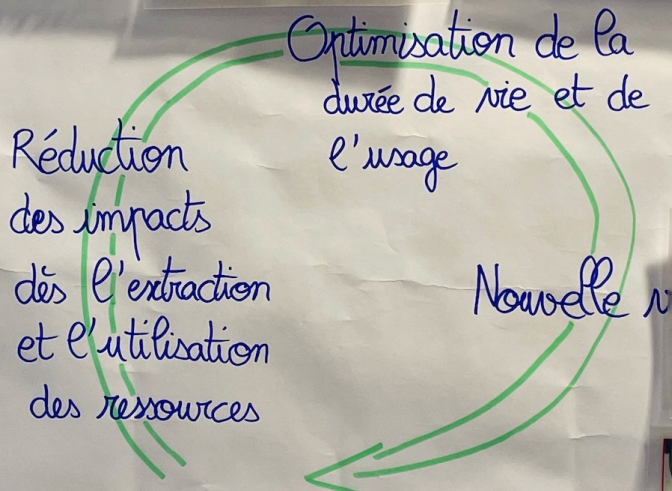 Optimisation de la
durée de vie et de
l'usage
Réduction
des impacts
dès l'extraction
et l'utilisation
des ressources
Nouvelle